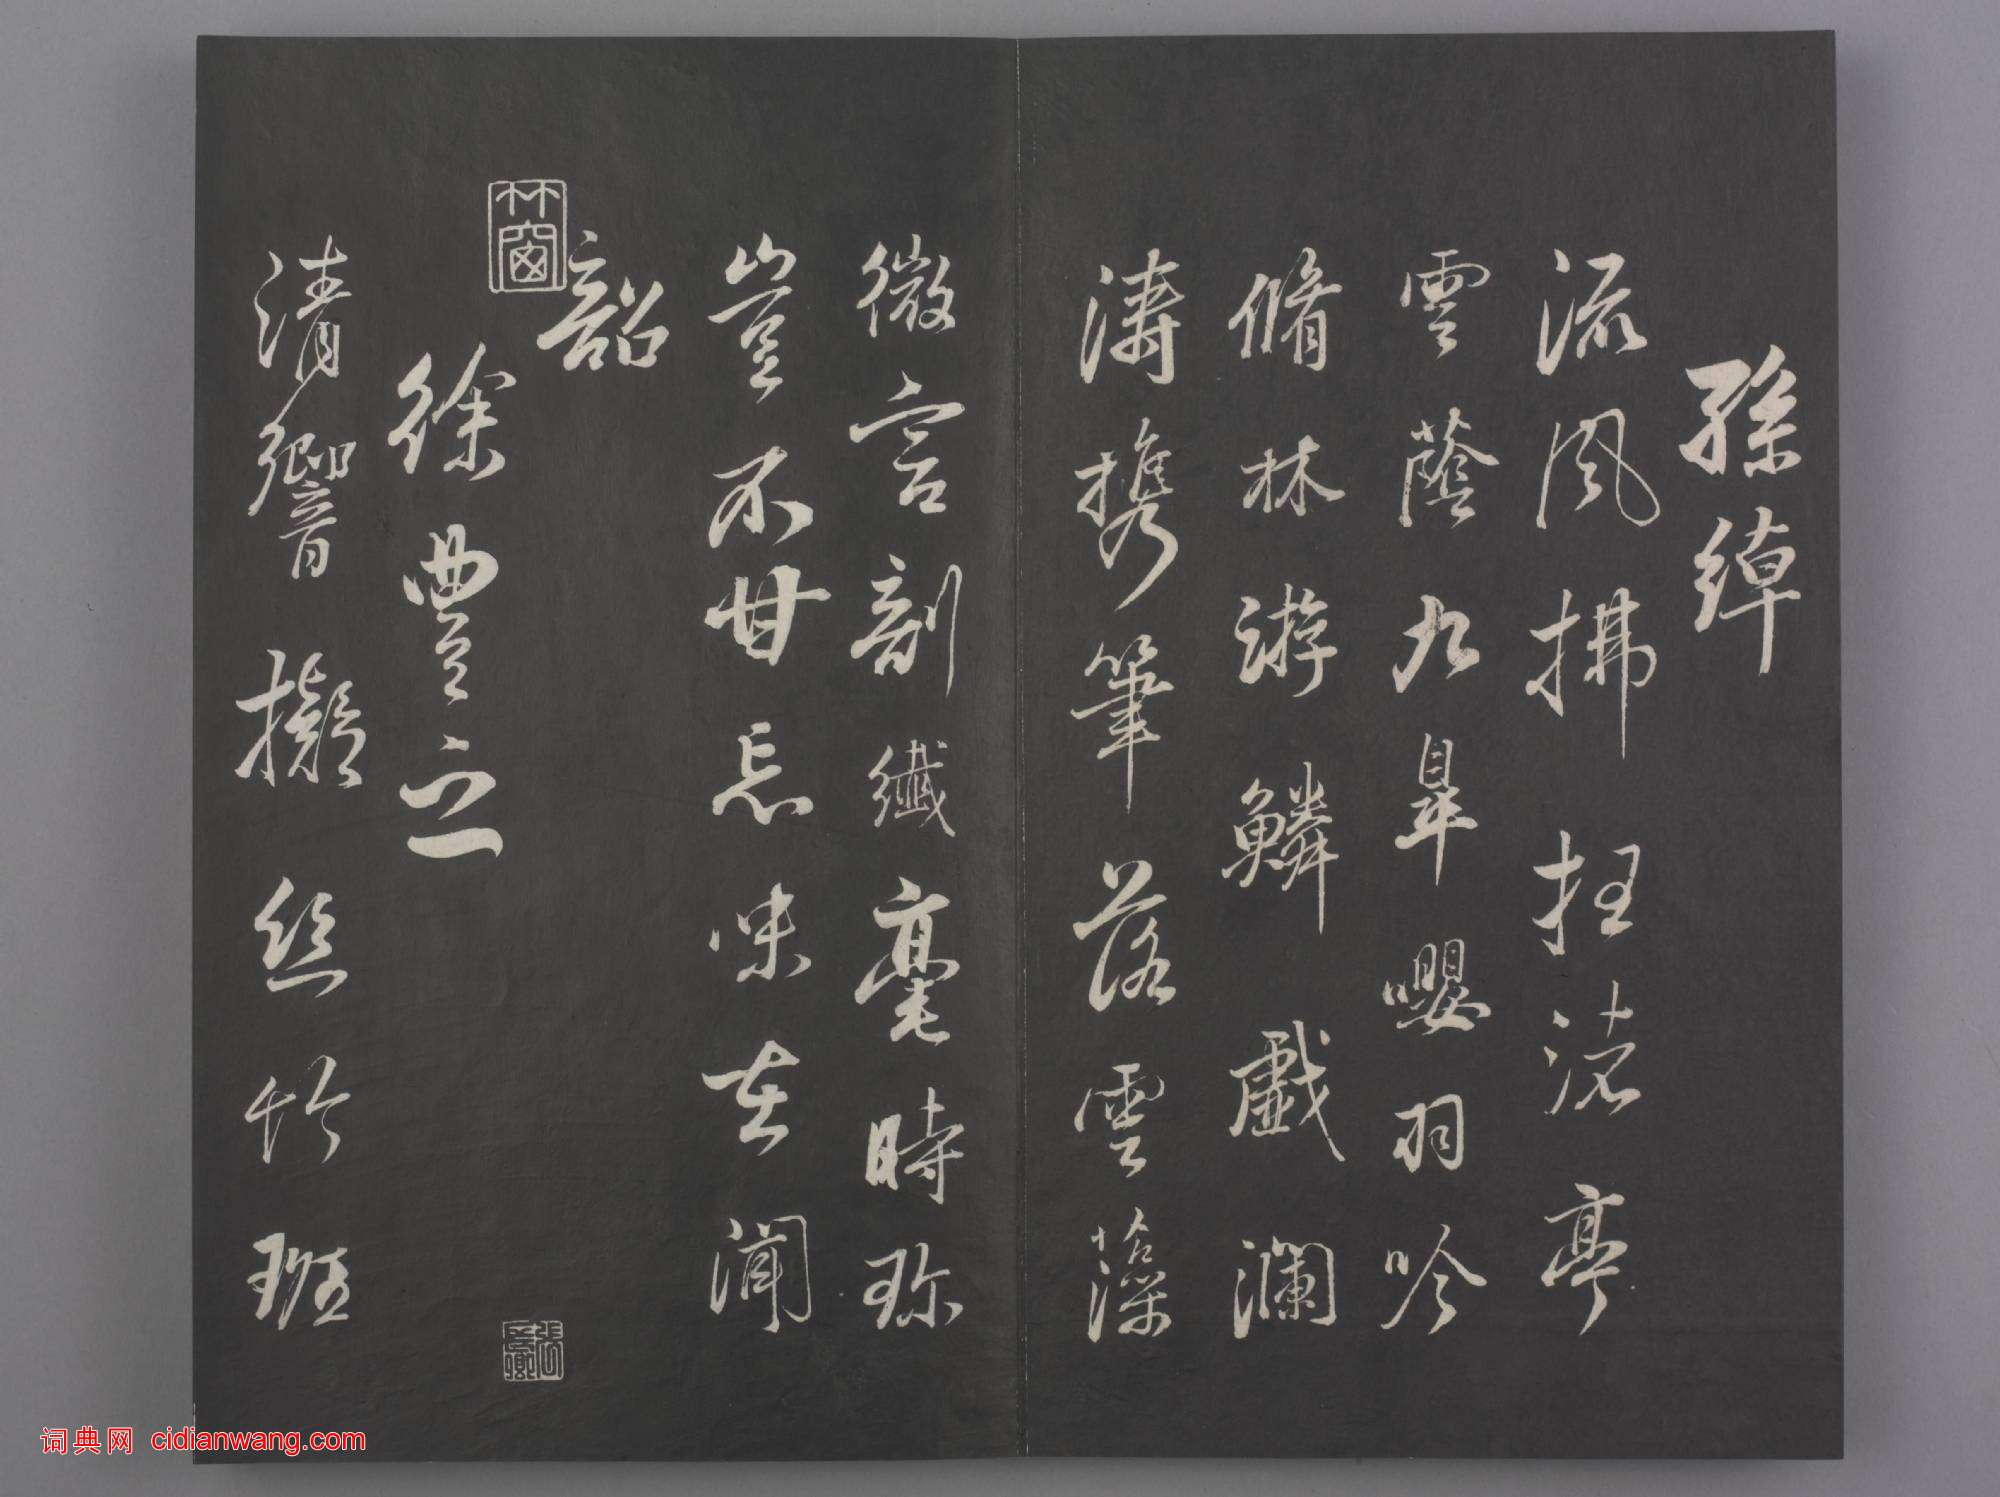 孫綽
流風拂抂渚亭
雲蔭九皐嚶羽吟
脩林游鱗戲瀾
濤攜筆落雲藻
微言剖纖毫時珍
豈不甘忘味在聞
韶
徐豐之
清響擬絲竹班
竹窗
詞典网 cidianwang.com